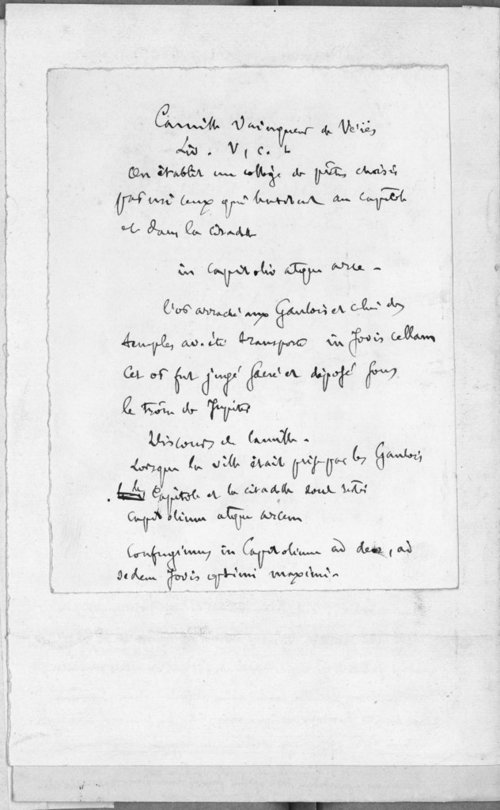 Camille Vainqueur de Véiès
Liv. V, c. L
On établit un collège de prêtres choisis
parmi ceux qui habitent au capitole
et dans la citadelle
in capitolio atque arce -
l'or arraché aux Gaulois et celui des
temples avait été transporté in Jovis cellam
Cet or fut jugé sacré et déposé sous
le trône de Jupiter
Discours de Camille -
Lorsque la ville était prise par les Gaulois
le Capitole et la citadelle sont restés
capitolium atque arcem
Confugimus in Capitolium ad deos, ad
sedem Jovis optimi maximi -